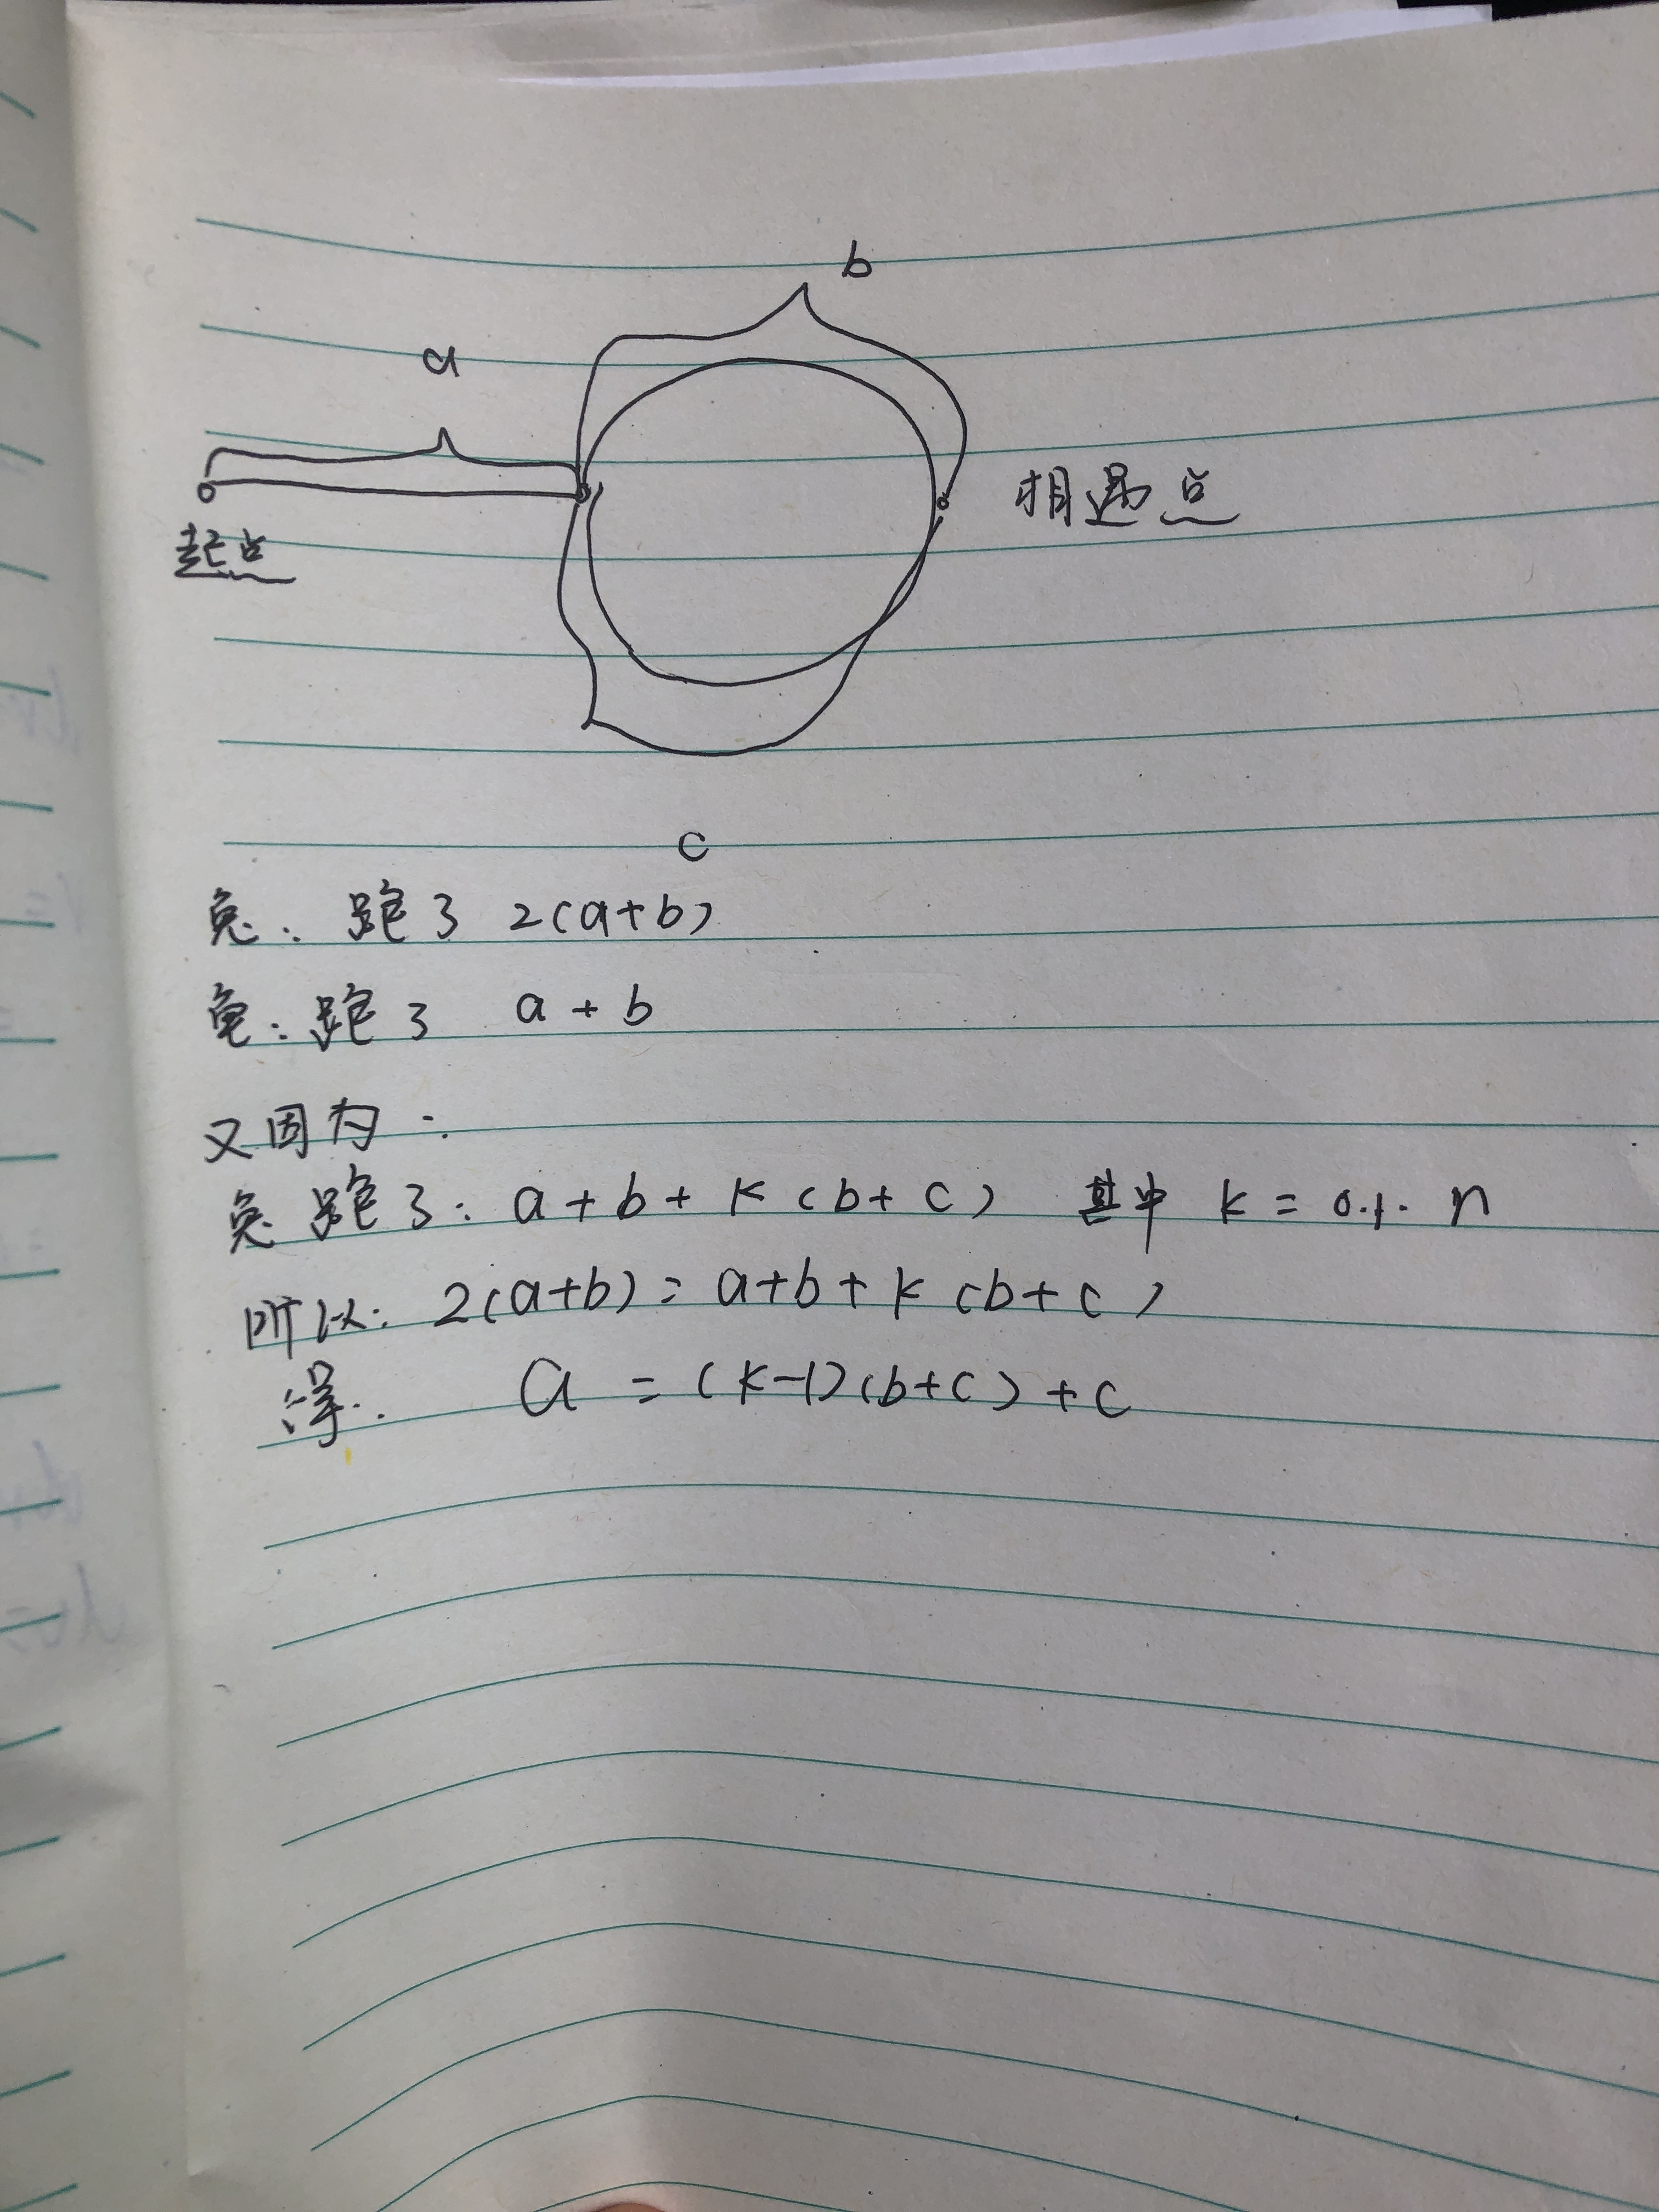 b
a
起点
相遇点
c
兔: 跑了 2(a+b)
龟: 跑了 a + b
又因为:
兔跑了: a + b + k (b + c) 其中 k = 0.1. n
所以: 2(a+b) = a+b + k (b + c)
得: a = (k-1)(b+c) + c